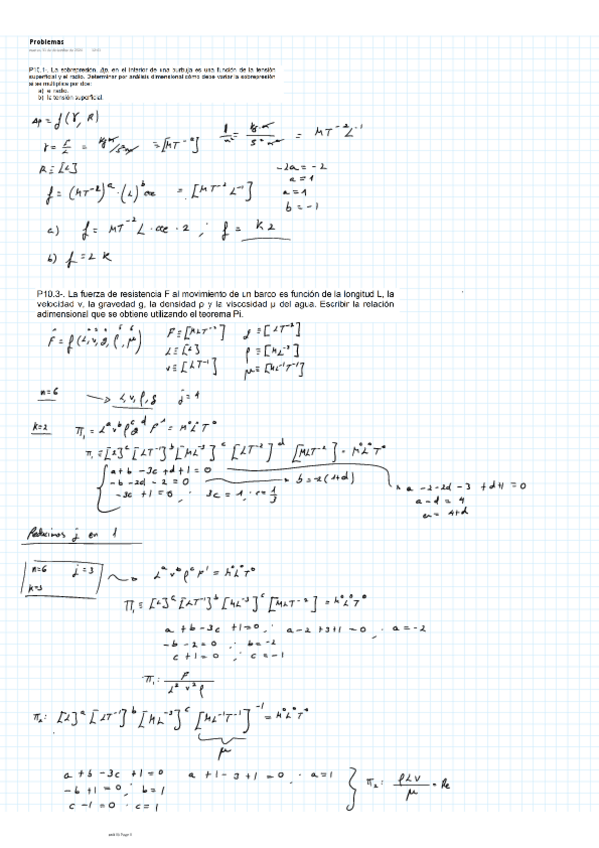 Problemas
P10.1-. La sobrepresión, Δp, en el interior de una burbuja es una función de la tensión
superficial y el radio. Determinar por análisis dimensional cómo debe variar la sobrepresión
si se multiplica por dos:
a) el radio.
b) la tensión superficial.
Δp = f(γ, R)
R ≡ [L]
-2a = -2
a = 1
f = (MT⁻²)ᵃ · (L)ᵇ = [MT⁻²L⁻¹]
a = 1
b = -1
a) f = MT⁻²L · 2 ; f = K2
b) f = 2 K
P10.3-. La fuerza de resistencia F al movimiento de un barco es función de la longitud L, la
velocidad v, la gravedad g, la densidad ρ y la viscosidad μ del agua. Escribir la relación
adimensional que se obtiene utilizando el teorema Pi.
F = f(L, v, g, ρ, μ)
F ≡ [MLT⁻²] g ≡ [LT⁻²]
L ≡ [L] ρ ≡ [ML⁻³]
v ≡ [LT⁻¹] μ ≡ [ML⁻¹T⁻¹]
n=6 → L, v, ρ, g j=4
k=2 π₁ = Lᵃ vᵇ ρᶜ gᵈ F¹ = M⁰L⁰T⁰
π₁ ≡ [L]ᵃ [LT⁻¹]ᵇ [ML⁻³]ᶜ [LT⁻²]ᵈ [MLT⁻²] = M⁰L⁰T⁰
a + b - 3c + d + 1 = 0
-b - 2d - 2 = 0
-3c + 1 = 0 ; 3c = 1 ; c = 1/3
a - 2 - 2d - 3 + d + 1 = 0
a - d = 4
a = 4+d
Reducimos j en 1
n=6 j=3
k=3
Lᵃ vᵇ ρᶜ F¹ = M⁰L⁰T⁰
π₁ ≡ [L]ᵃ [LT⁻¹]ᵇ [ML⁻³]ᶜ [MLT⁻²] = M⁰L⁰T⁰
a + b - 3c + 1 = 0 ; a - 2 + 3 + 1 = 0 ; a = -2
-b - 2 = 0 ; b = -2
c + 1 = 0 ; c = -1
π₁ : F / L² v² ρ
π₂ : [L]ᵃ [LT⁻¹]ᵇ [ML⁻³]ᶜ [ML⁻¹T⁻¹]⁻¹ = M⁰L⁰T⁰
μ
a + b - 3c + 1 = 0 a + 1 - 3 + 1 = 0 ; a = 1
-b + 1 = 0 ; b = 1
c - 1 = 0 ; c = 1
π₂ : ρLv / μ = Re